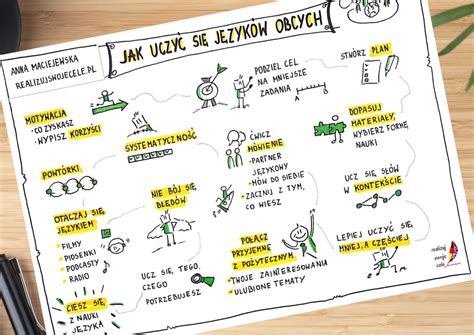 ANNA MACIEJEWSKA
REALIZUJSWOJECELE.PL
JAK UCZYĆ SIĘ JĘZYKÓW OBCYCH
MOTYWACJA
• CO ZYSKASZ
• WYPISZ KORZYŚCI
SYSTEMATYCZNOŚĆ
PODZIEL CEL
NA MNIEJSZE
ZADANIA
STWÓRZ PLAN
POWTÓRKI
ĆWICZ
MÓWIENIE
• PARTNER
JĘZYKOWY
• MÓW DO SIEBIE
• ZACZNIJ Z TYM,
CO WIESZ
DOPASUJ
MATERIAŁY,
WYBIERZ FORMĘ
NAUKI
OTACZAJ SIĘ
JĘZYKIEM
• FILMY
• PIOSENKI
• PODCASTY
• RADIO
NIE BÓJ SIĘ
BŁĘDÓW
UCZ SIĘ SŁÓW
W KONTEKŚCIE
CIESZ SIĘ
Z NAUKI
JĘZYKA
UCZ SIĘ TEGO,
CZEGO
POTRZEBUJESZ
POŁĄCZ
PRZYJEMNE
Z POŻYTECZNYM
• TWOJE ZAINTERESOWANIA
• ULUBIONE TEMATY
LEPIEJ UCZYĆ SIĘ
MNIEJ, A CZĘŚCIEJ
realizuj
swoje
cele